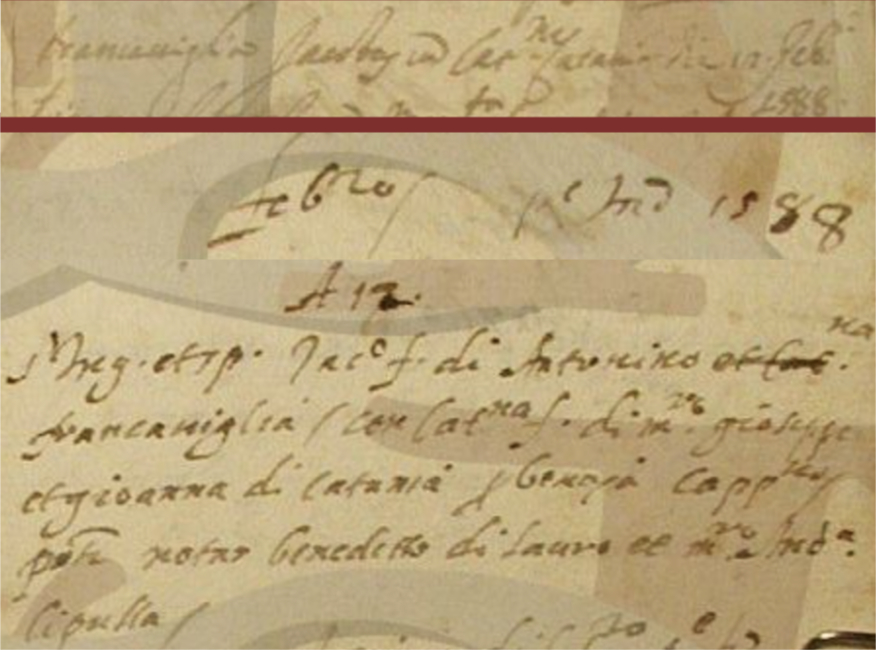 Francaviglia Jacobus cu Cat^na Catania die 12 feb^o
1588
Feb^ro p^e Ind 1588
A 12.
Ing. et sp. Jac^o f. di Antonino et Cat^na.
francaviglia con Cat^na f. di m^ro gioseppe
et gioanna di Catania benedi Capp^nus
p^nti notar benedetto di Lauro et m^ro And^a.
Cipulla